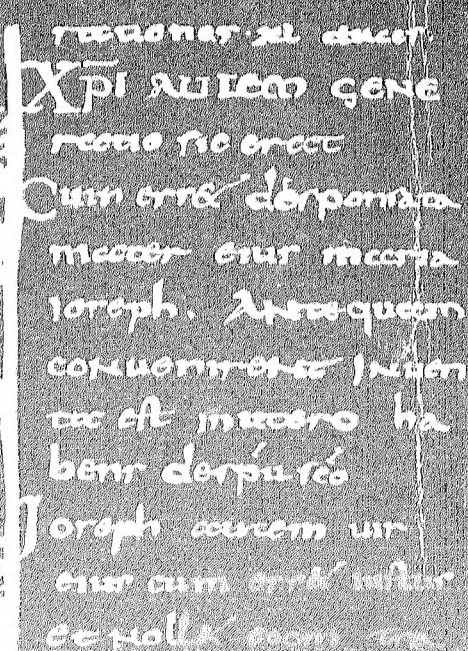 rationes
Xp̄i autem gene
ratio sic erat
Cum ess& desponsata
mater eius maria
ioseph. Antequam
conuenirent inuen
ta est in utero ha
bens de sp̄u sc̄o
Ioseph autem uir
eius cum ess& iustus
et noll& eam tra